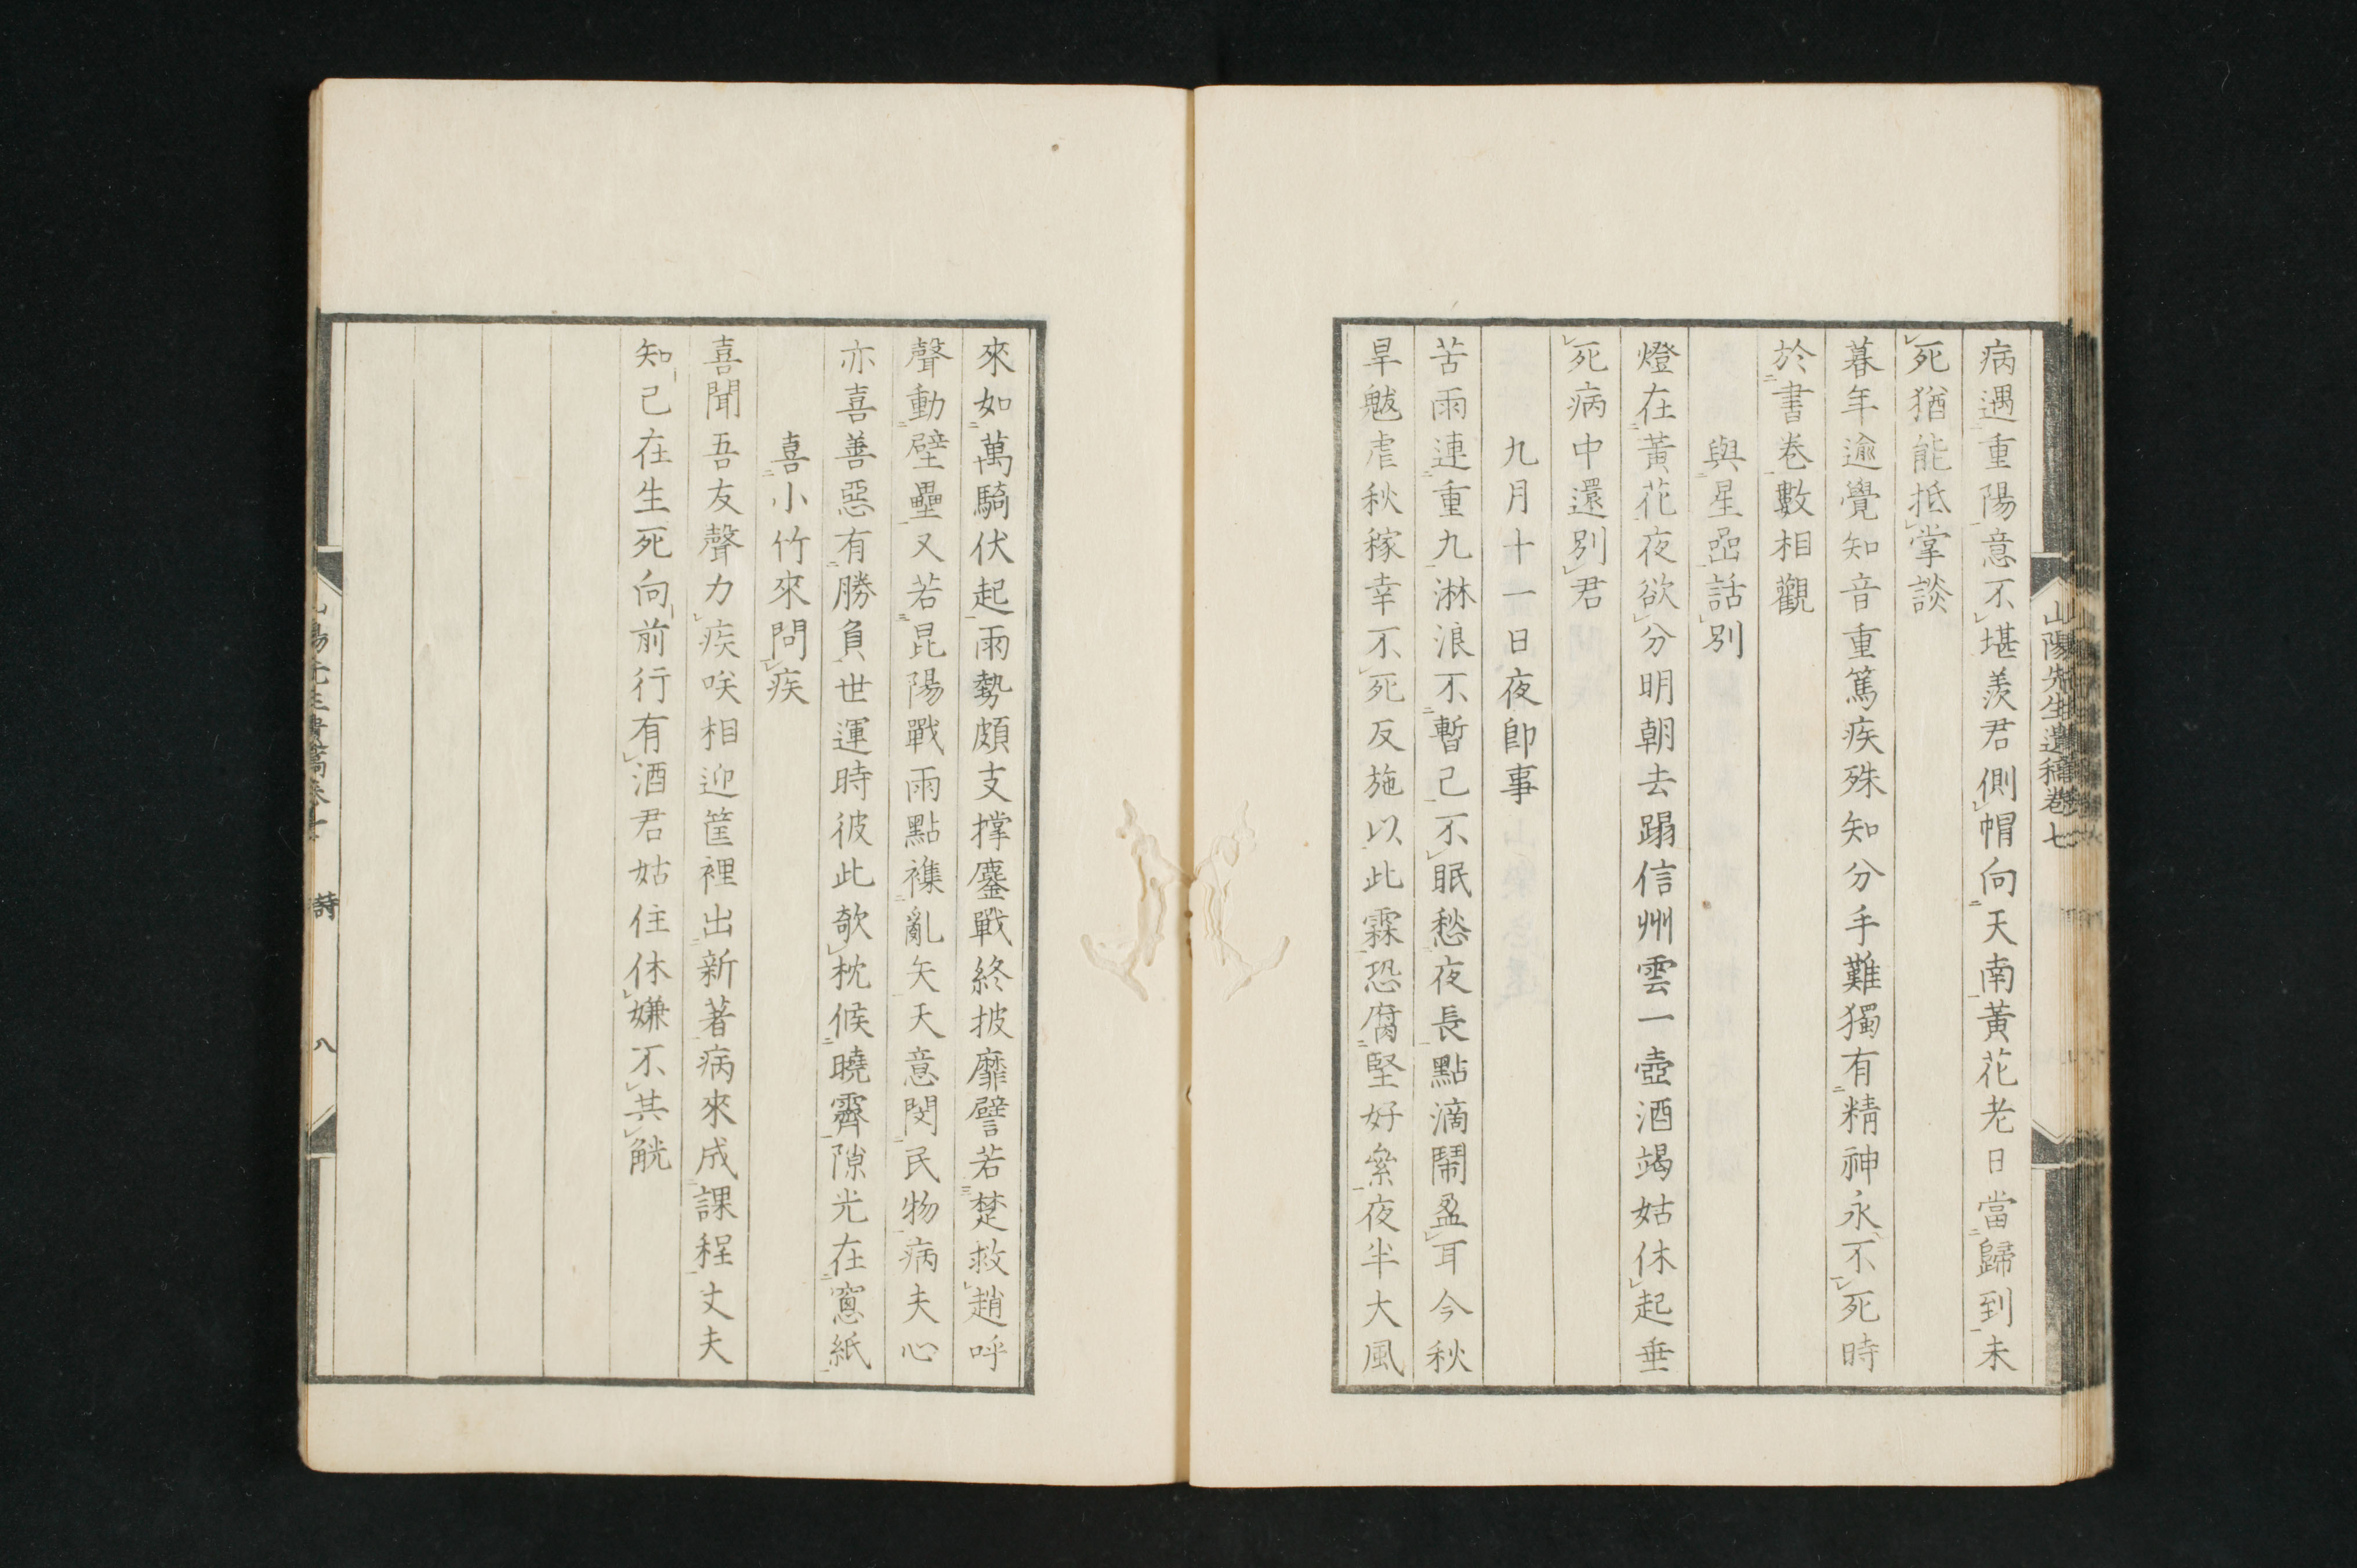 山陽先生遺稿卷七
病遇重陽意不堪羨君側帽向天南黃花老日當歸到未
死猶能抵掌談
暮年逾覺知音重篤疾殊知分手難獨有精神永不死時
於書卷數相觀
與星嵒話別
燈在黃花夜欲分明朝去蹋信州雲一壺酒竭姑休起垂
死病中還別君
九月十一日夜卽事
苦雨連重九淋浪不暫已不眠愁夜長點滴鬧盈耳今秋
旱魃虐秋稼幸不死反施以此霖恐腐堅好絫夜半大風
來如萬騎伏起雨勢頗支撐鏖戰終披靡譬若楚救趙呼
聲動壁壘又若昆陽戰雨點襍亂矢天意閔民物病夫心
亦喜善惡有勝負世運時彼此欹枕候曉霽隙光在窻紙
喜小竹來問疾
喜聞吾友聲力疾咲相迎筐裡出新著病來成課程丈夫
知己在生死向前行有酒君姑住休嫌不共觥
詩
八